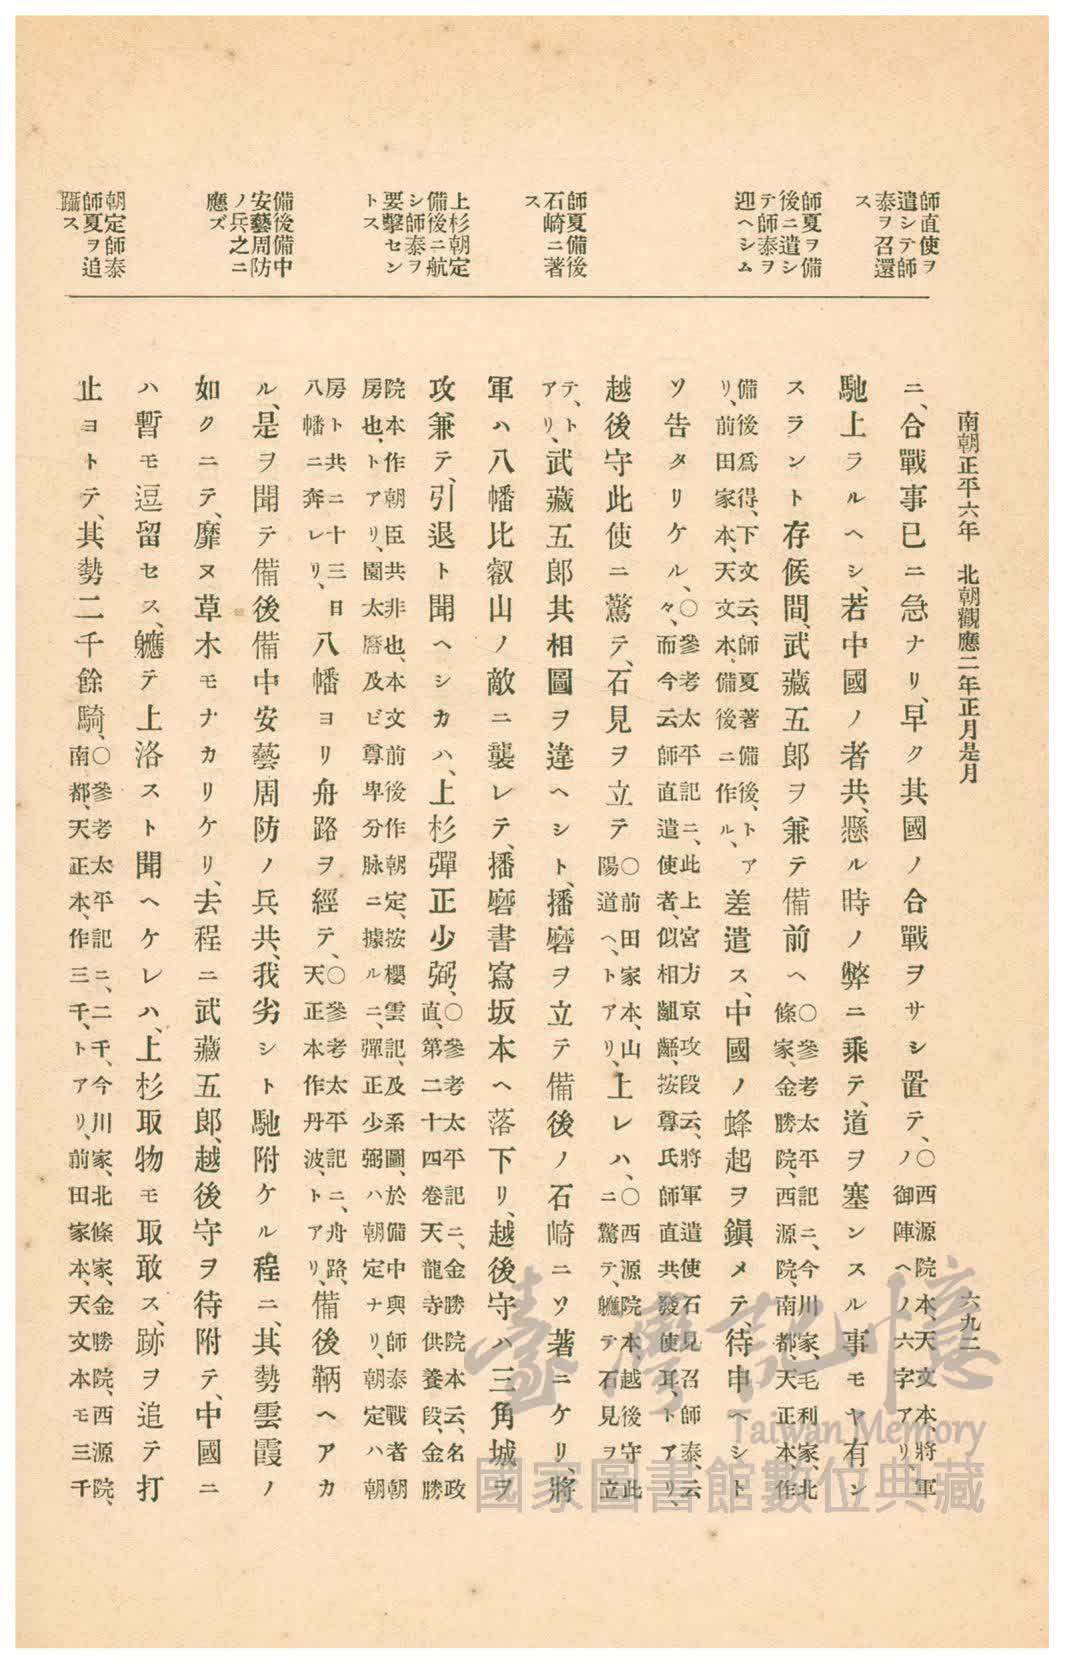 南朝正平六年　北朝觀應二年正月是月
六九二
師直使ヲ
遣シテ師
泰ヲ召還
ス
師夏ヲ備
後ニ遣シ
テ師泰ヲ
迎ヘシム
師夏備後
石崎ニ著
ス
上杉朝定
備後ニ航
シ師泰ヲ
要擊セン
トス
備後備中
安藝周防
ノ兵之ニ
應ズ
朝定師泰
師夏ヲ追
躡ス
ニ、合戰事已ニ急ナリ、早ク其國ノ合戰ヲサシ置テ、〇西源院本、天文本、將軍ノ御陣ヘノ六字アリ、
馳上ラルヘシ、若中國ノ者共、懸ル時ノ弊ニ乘テ、道ヲ塞ンスル事モヤ有ン
スラント存候間、武藏五郎ヲ兼テ備前ヘ〇參考太平記ニ、今川家、毛利家、北條家、金勝院、西源院、南都、天正本、作
備後爲得、下文云、師夏著備後、トアリ、前田家本、天文本、備後ニ作ル、差遣ス、中國ノ蜂起ヲ鎭メテ、待申ヘシト
ソ告タリケル、〇參考太平記ニ、此上宮方京攻段云、將軍遣使石見召師泰、云々、而今云師直遣使者、似相齟齬、按尊氏師直共發使耳、トアリ、
越後守此使ニ驚テ、石見ヲ立テ〇前田家本、山陽道ヘ、トアリ、上レハ、〇西源院本、越後守此ニ驚テ、軈テ石見ヲ立
テ、トアリ、武藏五郎其相圖ヲ違ヘシト、播磨ヲ立テ備後ノ石崎ニソ著ニケリ、將
軍ハ八幡比叡山ノ敵ニ襲レテ、播磨書寫坂本ヘ落下リ、越後守ハ三角城ヲ
攻兼テ、引退ト聞ヘシカハ、上杉彈正少弼、〇參考太平記ニ、金勝院本云、名政直、第二十四卷天龍寺供養段、金勝
院本作朝臣共非也、本文前後作朝定、按櫻雲記、及系圖、於備中與師泰戰者朝房也、トアリ、園太曆及ビ尊卑分脉ニ據ルニ、彈正少弼ハ朝定ナリ、朝定ハ朝
房ト共ニ十三日八幡ニ奔レリ、八幡ヨリ舟路ヲ經テ、〇參考太平記ニ、舟路、天正本作丹波、トアリ、備後鞆ヘアカ
ル、是ヲ聞テ備後備中安藝周防ノ兵共、我劣シト馳附ケル程ニ、其勢雲霞ノ
如クニテ、靡ヌ草木モナカリケリ、去程ニ武藏五郎、越後守ヲ待附テ、中國ニ
ハ暫モ逗留セス、軈テ上洛スト聞ヘケレハ、上杉取物モ取敢ス、跡ヲ追テ打
止ヨトテ、其勢二千餘騎、〇參考太平記ニ、二千、今川家、北條家、金勝院、西源院、南都、天正本、作三千、トアリ、前田家本、天文本モ三千
臺灣記憶
Taiwan Memory
國家圖書館數位典藏